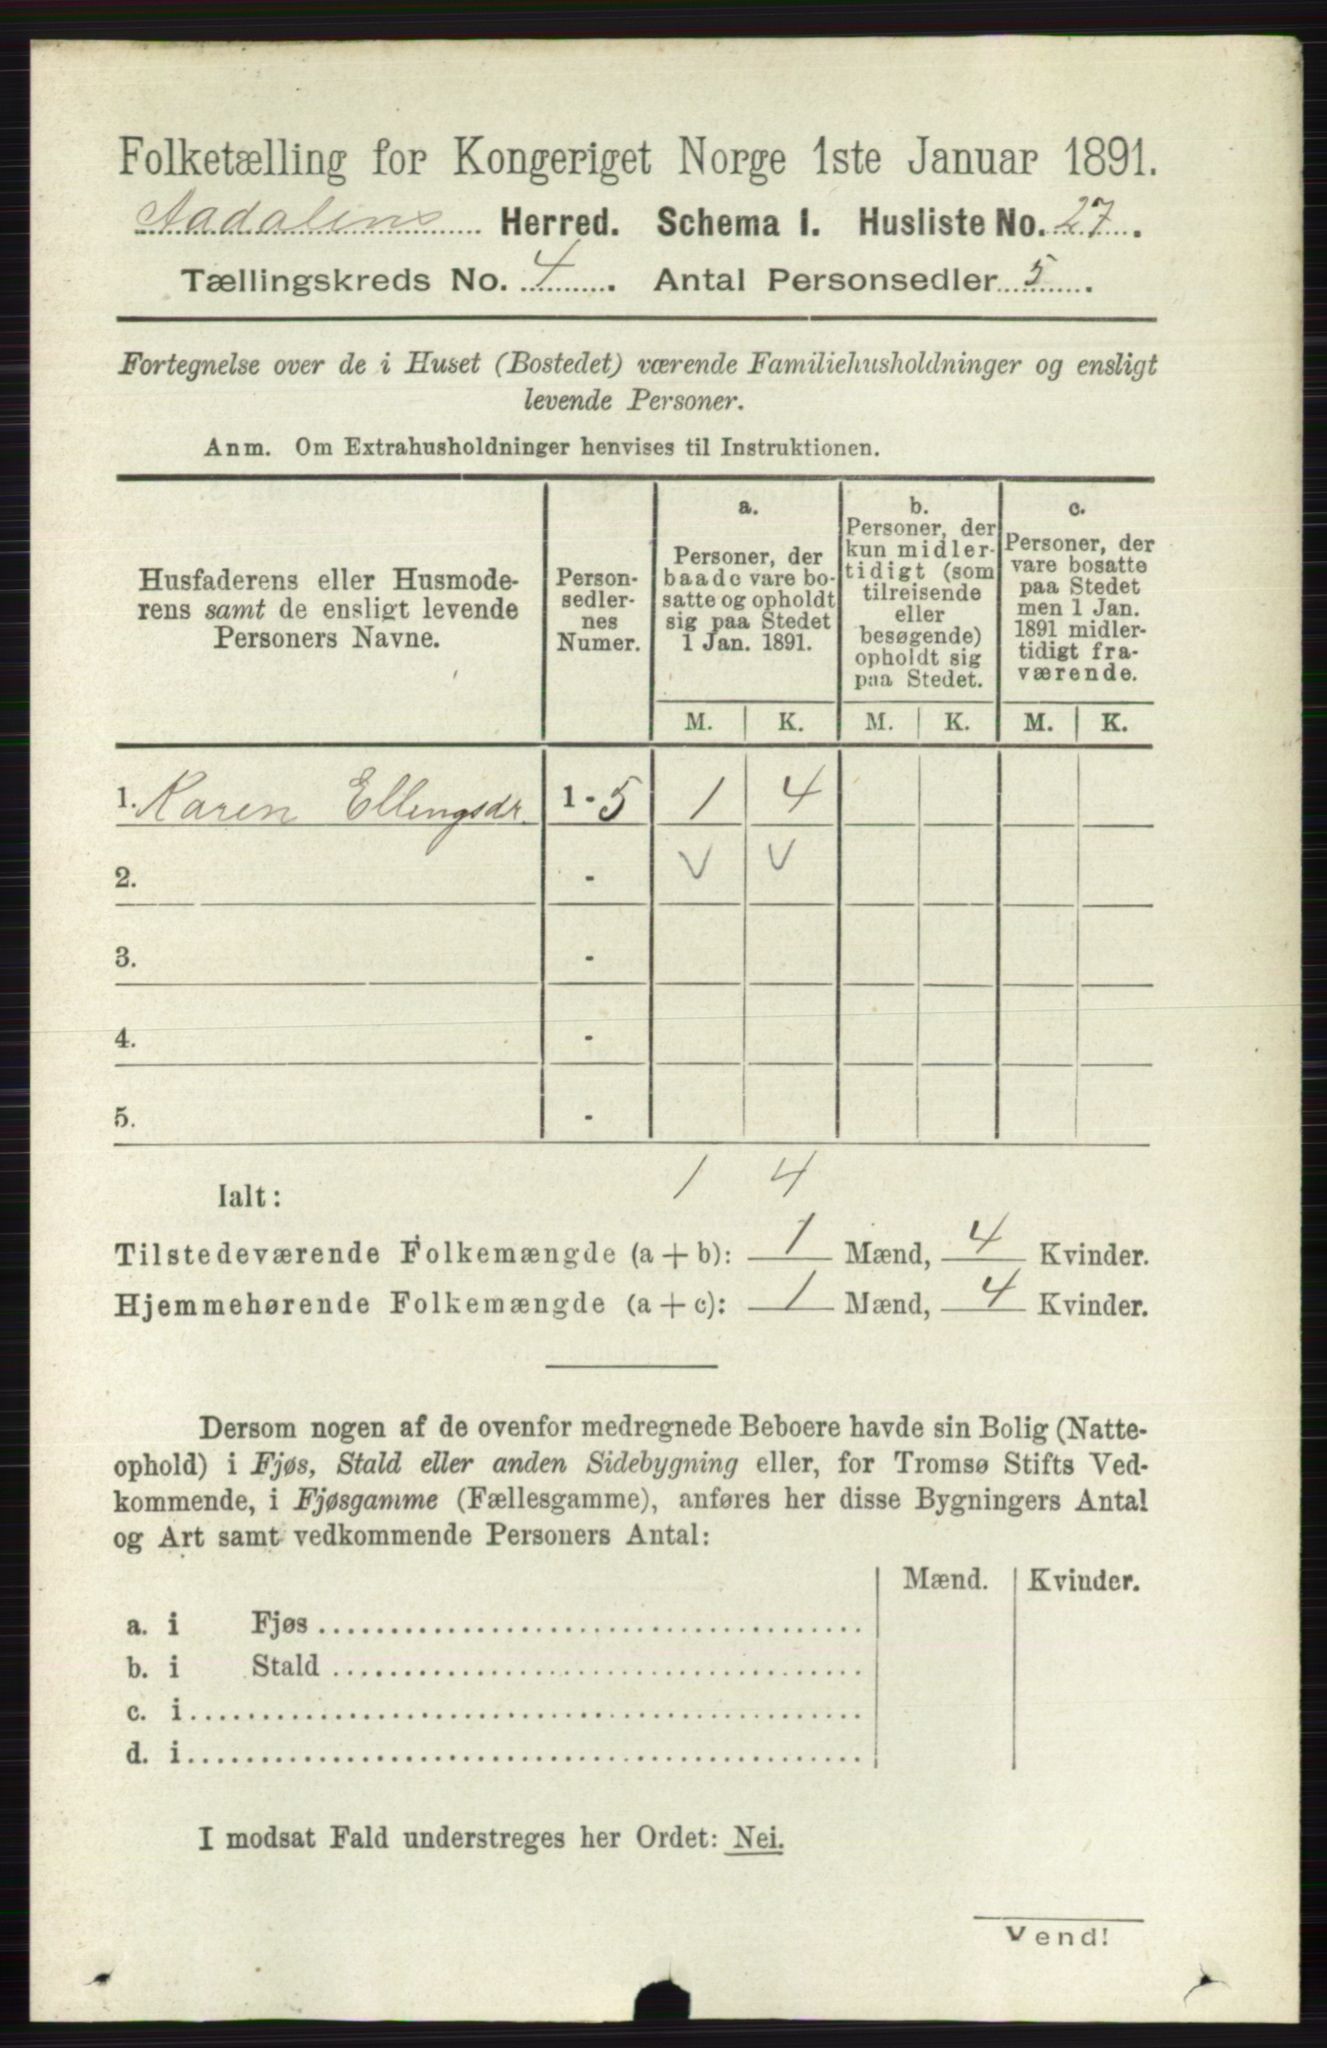 Folketælling for Kongeriget Norge 1ste Januar 1891.
Aadalens Herred. Schema I. Husliste No. 27.
Tællingskreds No. 4. Antal Personsedler 5.
Fortegnelse over de i Huset (Bostedet) værende Familiehusholdninger og ensligt
levende Personer.
Anm. Om Extrahusholdninger henvises til Instruktionen.
Husfaderens eller Husmode-
rens samt de ensligt levende
Personers Navne.
Person-
sedler-
nes
Numer.
a.
Personer, der
baade vare bo-
satte og opholdt
sig paa Stedet
1 Jan. 1891.
b.
Personer, der
kun midler-
tidigt (som
tilreisende
eller
besøgende)
opholdt sig
paa Stedet.
c.
Personer, der
vare bosatte
paa Stedet
men 1 Jan.
1891 midler-
tidigt fra-
værende.
M. K. M. K. M. K.
1. Karen Ellingsdr. 1-5 1 4
2. - V V
3. -
4. -
5. -
Ialt: 1 4
Tilstedeværende Folkemængde (a + b): 1 Mænd, 4 Kvinder.
Hjemmehørende Folkemængde (a + c): 1 Mænd, 4 Kvinder.
Dersom nogen af de ovenfor medregnede Beboere havde sin Bolig (Natte-
ophold) i Fjøs, Stald eller anden Sidebygning eller, for Tromsø Stifts Ved-
kommende, i Fjøsgamme (Fællesgamme), anføres her disse Bygningers Antal
og Art samt vedkommende Personers Antal:
Mænd. Kvinder.
a. i Fjøs
b. i Stald
c. i
d. i
I modsat Fald understreges her Ordet: Nei.
Vend!